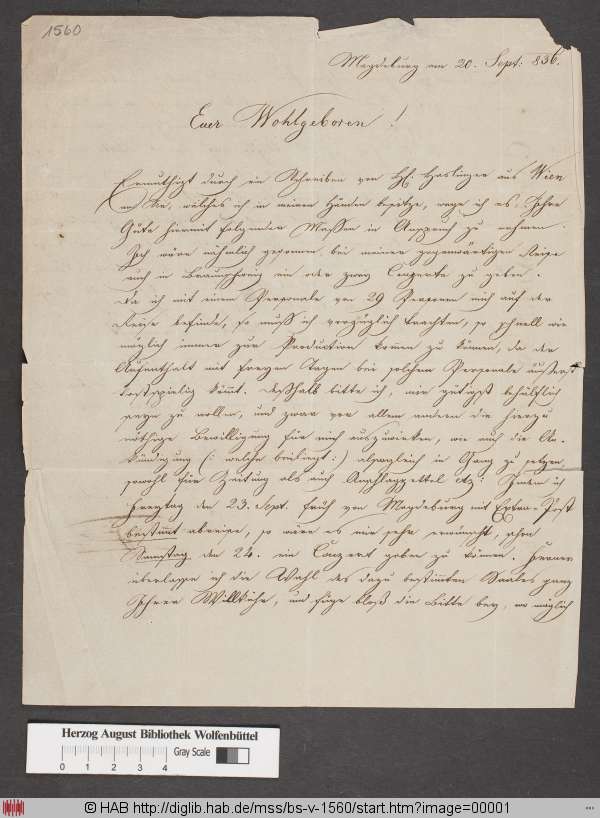 1560
Magdeburg am 20. Sept: 836.
Euer Wohlgeboren!
Ermuthigt durch ein Schreiben von H: Haslinger aus Wien
an Sie, welches ich in meinen Händen besitze, wage ich es, Ihre
Güte hiermit folgender Massen in Anspruch zu nehmen.
Ich wäre nähmlich gesonnen bei meiner gegenwärtigen Reise
auch in Braunschweig ein oder zwey Conzerte zu geben.
Da ich mit einem Personale von 29 Personen mich auf der
Reise befinde, so muß ich vorzüglich trachten, so schnell wie
möglich immer zur Production komen zu können, da der
Aufenthalt mit freyen Tagen bei solchem Personale äußerst
kostspielig kömt. Deßhalb bitte ich, mir gütigst behülflich
seyn zu wollen, und zwar vor allem andern die hierzu
nöthige Bewilligung für mich auszuwirken, wie auch die An-
kündigung (: welche beiliegt :) alsogleich in Gang zu setzen
sowohl für Zeitung als auch Anschlagzettel etz: Indem ich
Freytag den 23. Sept. früh von Magdeburg mit Extra-Post
bestimt abreise, so wäre es mir sehr erwünscht, schon
Samstag den 24. ein Conzert geben zu können. Ferner
überlasse ich die Wahl des dazu bestimten Saales ganz
Ihrer Willkühr, und füge bloß die Bitte bey, wo möglich
Herzog August Bibliothek Wolfenbüttel
Gray Scale
0 1 2 3 4
© HAB http://diglib.hab.de/mss/bs-v-1560/start.htm?image=00001